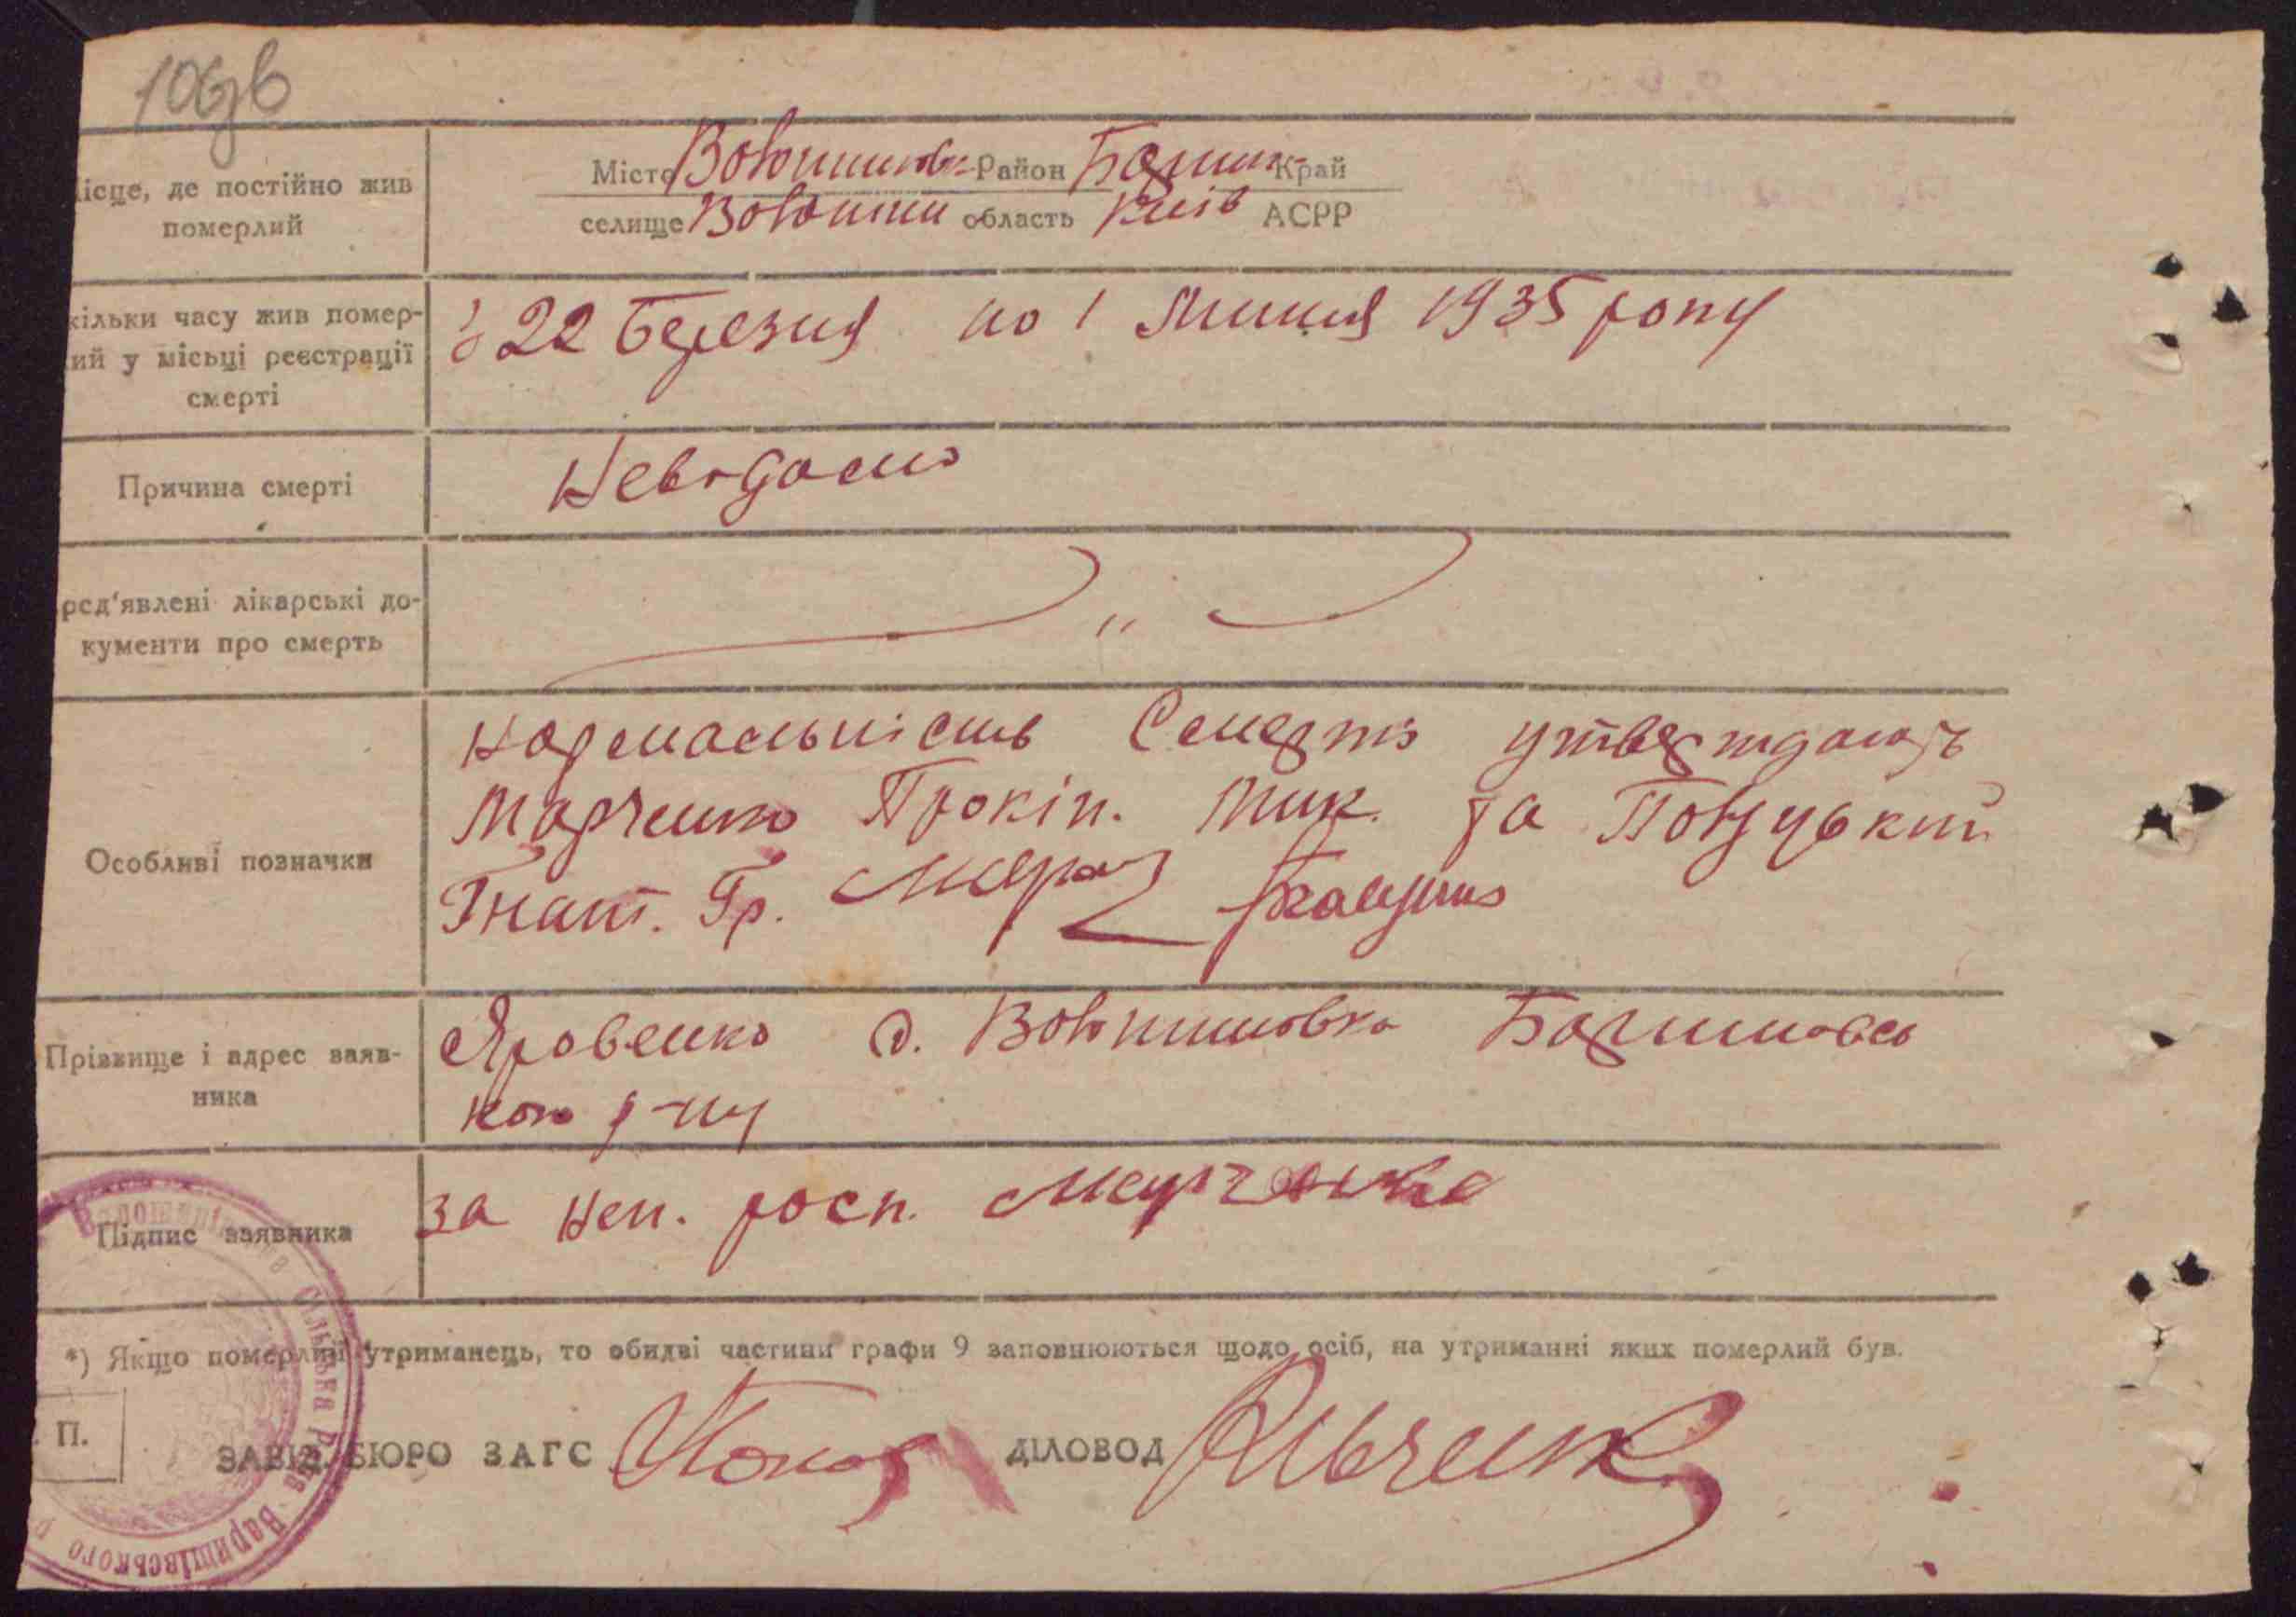 106зв
ісце, де постійно жив
померлий
Місто Волошинівк Район Баришів Край
селище Волошин область Київ АСРР
кільки часу жив помер-
ий у місці реєстрації
смерті
з 22 березня по 1 Липня 1935 року
Причина смерті
Невідомо
ред'явлені лікарські до-
кументи про смерть
"
Особливі позначки
нормальність Смерті утверждають
Марченко Прокіп. Мик. та
Гнат. Гр.
Прізвище і адрес заяв-
ника
Яровенко с. Волошиновка Баришовсь
кого р-ну
Підпис заявника
за неп. росп.
*) Якщо померлий утриманець, то обидві частини графи 9 заповнюються щодо осіб, на утриманні яких померлий був.
П.
ЗАВІД. БЮРО ЗАГС
ДІЛОВОД
Сільська Рада Баришівського